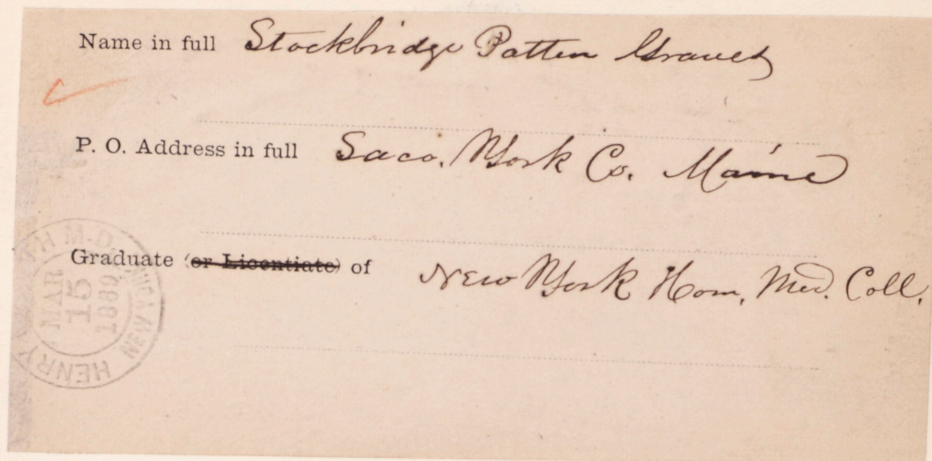 Name in full Stockbridge Patten Graves
P. O. Address in full Saco, York Co. Maine
Graduate (or Licentiate) of New York Hom. Med. Coll.
TH M.D.
MAR
15
1889
NEW
HENRY